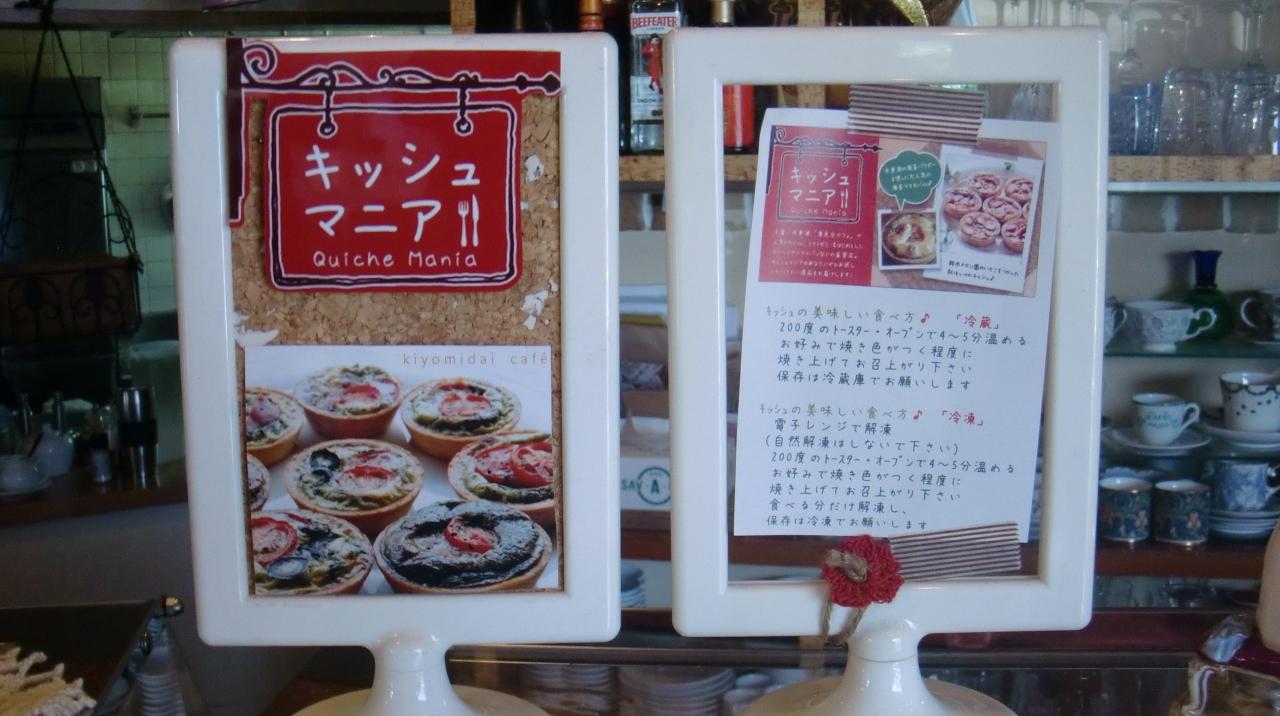 キッシュ
マニア
Quiche Mania
kiyomidai café
BEEFEATER
LONDON
キッシュ
マニア
Quiche Mania
キッシュの美味しい食べ方♪ 「冷蔵」
200度のトースター・オーブンで4～5分温める
お好みで焼き色がつく程度に
焼き上げてお召上がり下さい
保存は冷蔵庫でお願いします
キッシュの美味しい食べ方♪ 「冷凍」
電子レンジで解凍
(自然解凍はしないで下さい)
200度のトースター・オーブンで4～5分温める
お好みで焼き色がつく程度に
焼き上げてお召上がり下さい
食べる分だけ解凍し、
保存は冷凍でお願いします